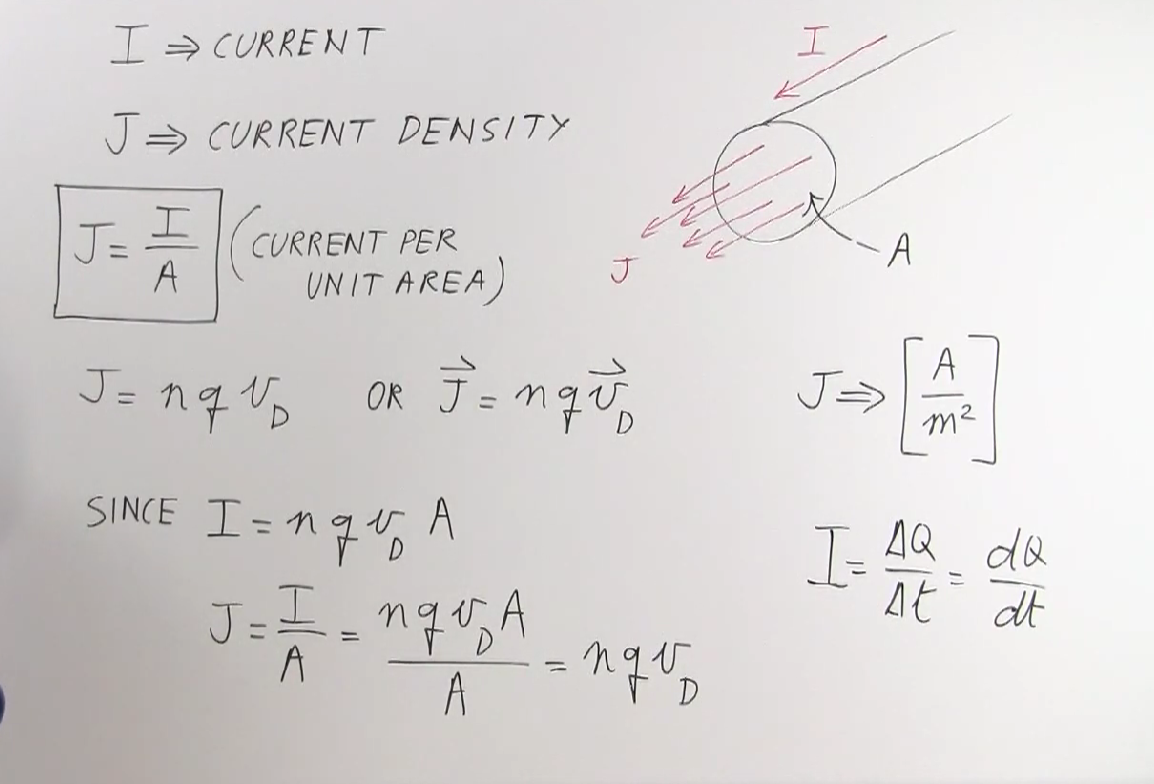 I ⇒ CURRENT
J ⇒ CURRENT DENSITY
J = I/A (CURRENT PER
UNIT AREA)
I
A
J
J = nqv_D OR J⃗ = nqv⃗_D
J ⇒ [A/m²]
SINCE I = nqv_D A
I = ΔQ/Δt = dQ/dt
J = I/A = nqv_D A/A = nqv_D